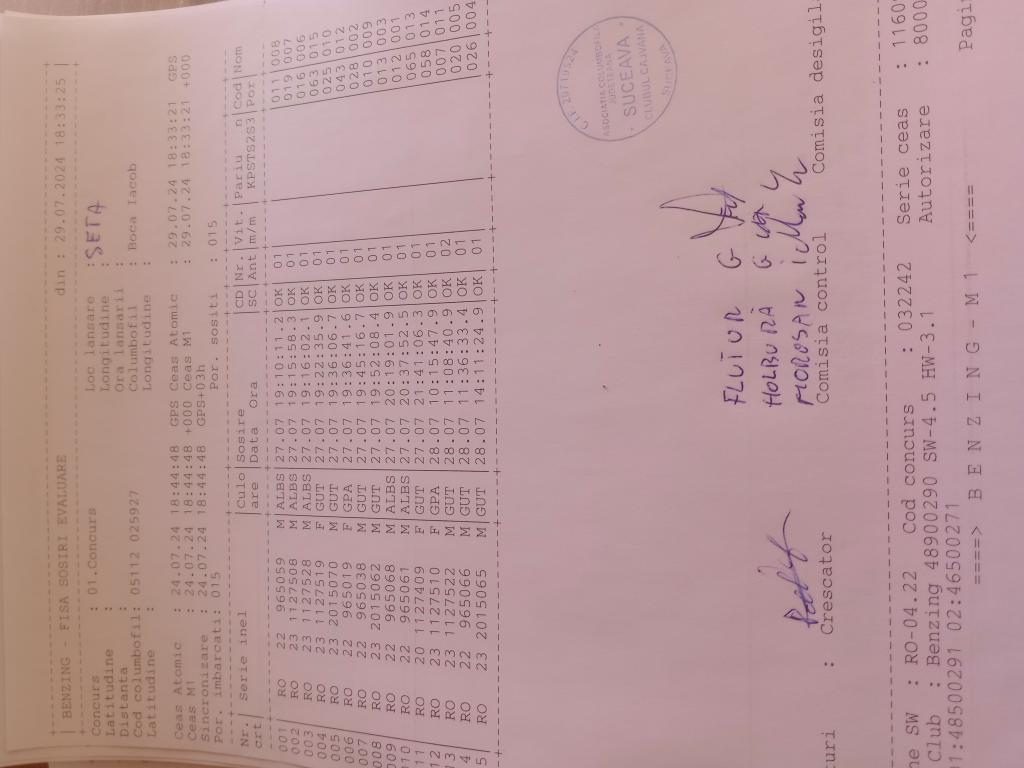 | BENZING - FISA SOSIRI EVALUARE din : 29.07.2024 18:33:25 |
Concurs : 01.Concurs Loc lansare : SETA
Latitudine : Longitudine :
Distanta : Ora lansarii :
Cod columbofil: 05112 025927 Columbofil : Boca Iacob
Latitudine : Longitudine :
Ceas Atomic : 24.07.24 18:44:48 GPS Ceas Atomic : 29.07.24 18:33:21 GPS
Ceas M1 : 24.07.24 18:44:48 +000 Ceas M1 : 29.07.24 18:33:21 +000
Sincronizare : 24.07.24 18:44:48 GPS+03h
Por. imbarcati: 015 Por. sositi : 015
Nr.| Serie inel |Culo|Sosire |CD|Nr.|Vit.|Pariu n|Cod|Nom
crt| |are |Data Ora |SC|Ant|m/m |KPSTS2S3|Por|
001 RO 22 965059 M|ALBS|27.07 19:10:11.2|OK| 01 011|008
002 RO 23 1127508 M|ALBS|27.07 19:15:58.3|OK| 01 019|007
003 RO 23 1127528 M|ALBS|27.07 19:16:02.1|OK| 01 016|006
004 RO 23 1127519 F|GUT |27.07 19:22:35.9|OK| 01 063|015
005 RO 23 2015070 M|GUT |27.07 19:36:06.7|OK| 01 025|010
006 RO 22 965019 F|GPA |27.07 19:36:41.6|OK| 01 043|012
007 RO 22 965038 M|GUT |27.07 19:45:16.7|OK| 01 028|002
008 RO 23 2015062 M|GUT |27.07 19:52:08.4|OK| 01 010|009
009 RO 22 965068 M|ALBS|27.07 20:19:01.9|OK| 01 013|003
010 RO 22 965061 M|ALBS|27.07 20:37:52.5|OK| 01 012|001
11 RO 20 1127409 F|GUT |27.07 21:41:06.3|OK| 01 065|013
12 RO 23 1127510 F|GPA |28.07 10:15:47.9|OK| 01 058|014
13 RO 23 1127522 M|GUT |28.07 11:08:40.9|OK| 02 007|011
4 RO 22 965066 M|GUT |28.07 11:36:33.4|OK| 01 020|005
5 RO 23 2015065 M|GUT |28.07 14:11:24.9|OK| 01 026|004
C.I.F. 28719524
ASOCIATIA COLUMBOFILA
JUDETEANA
SUCEAVA
CLUBUL CAJVANA
SUCEAVA
FLUTUR G
HOLBURĂ G
MOROSAN
turi : Crescator Comisia control Comisia desigila
ne SW : RO-04.22 Cod concurs : 032242 Serie ceas : 1160
Club : Benzing 48900290 SW-4.5 HW-3.1 Autorizare : 8000
01:48500291 02:46500271
Pagin
====> B E N Z I N G - M 1 <====